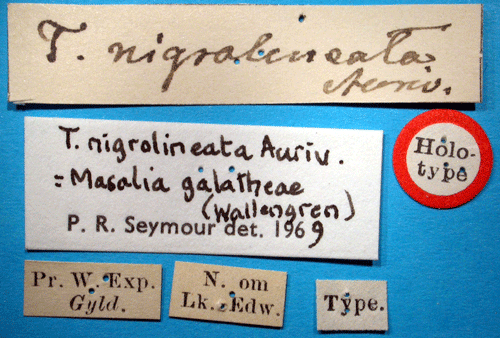 T. nigrolineata
Auriv.
T. nigrolineata Auriv.
= Masalia galatheae
(Wallengren)
P. R. Seymour det. 1969
Holo-
type
Pr. W. Exp.
Gyld.
N. om
Lk. Edw.
Type.